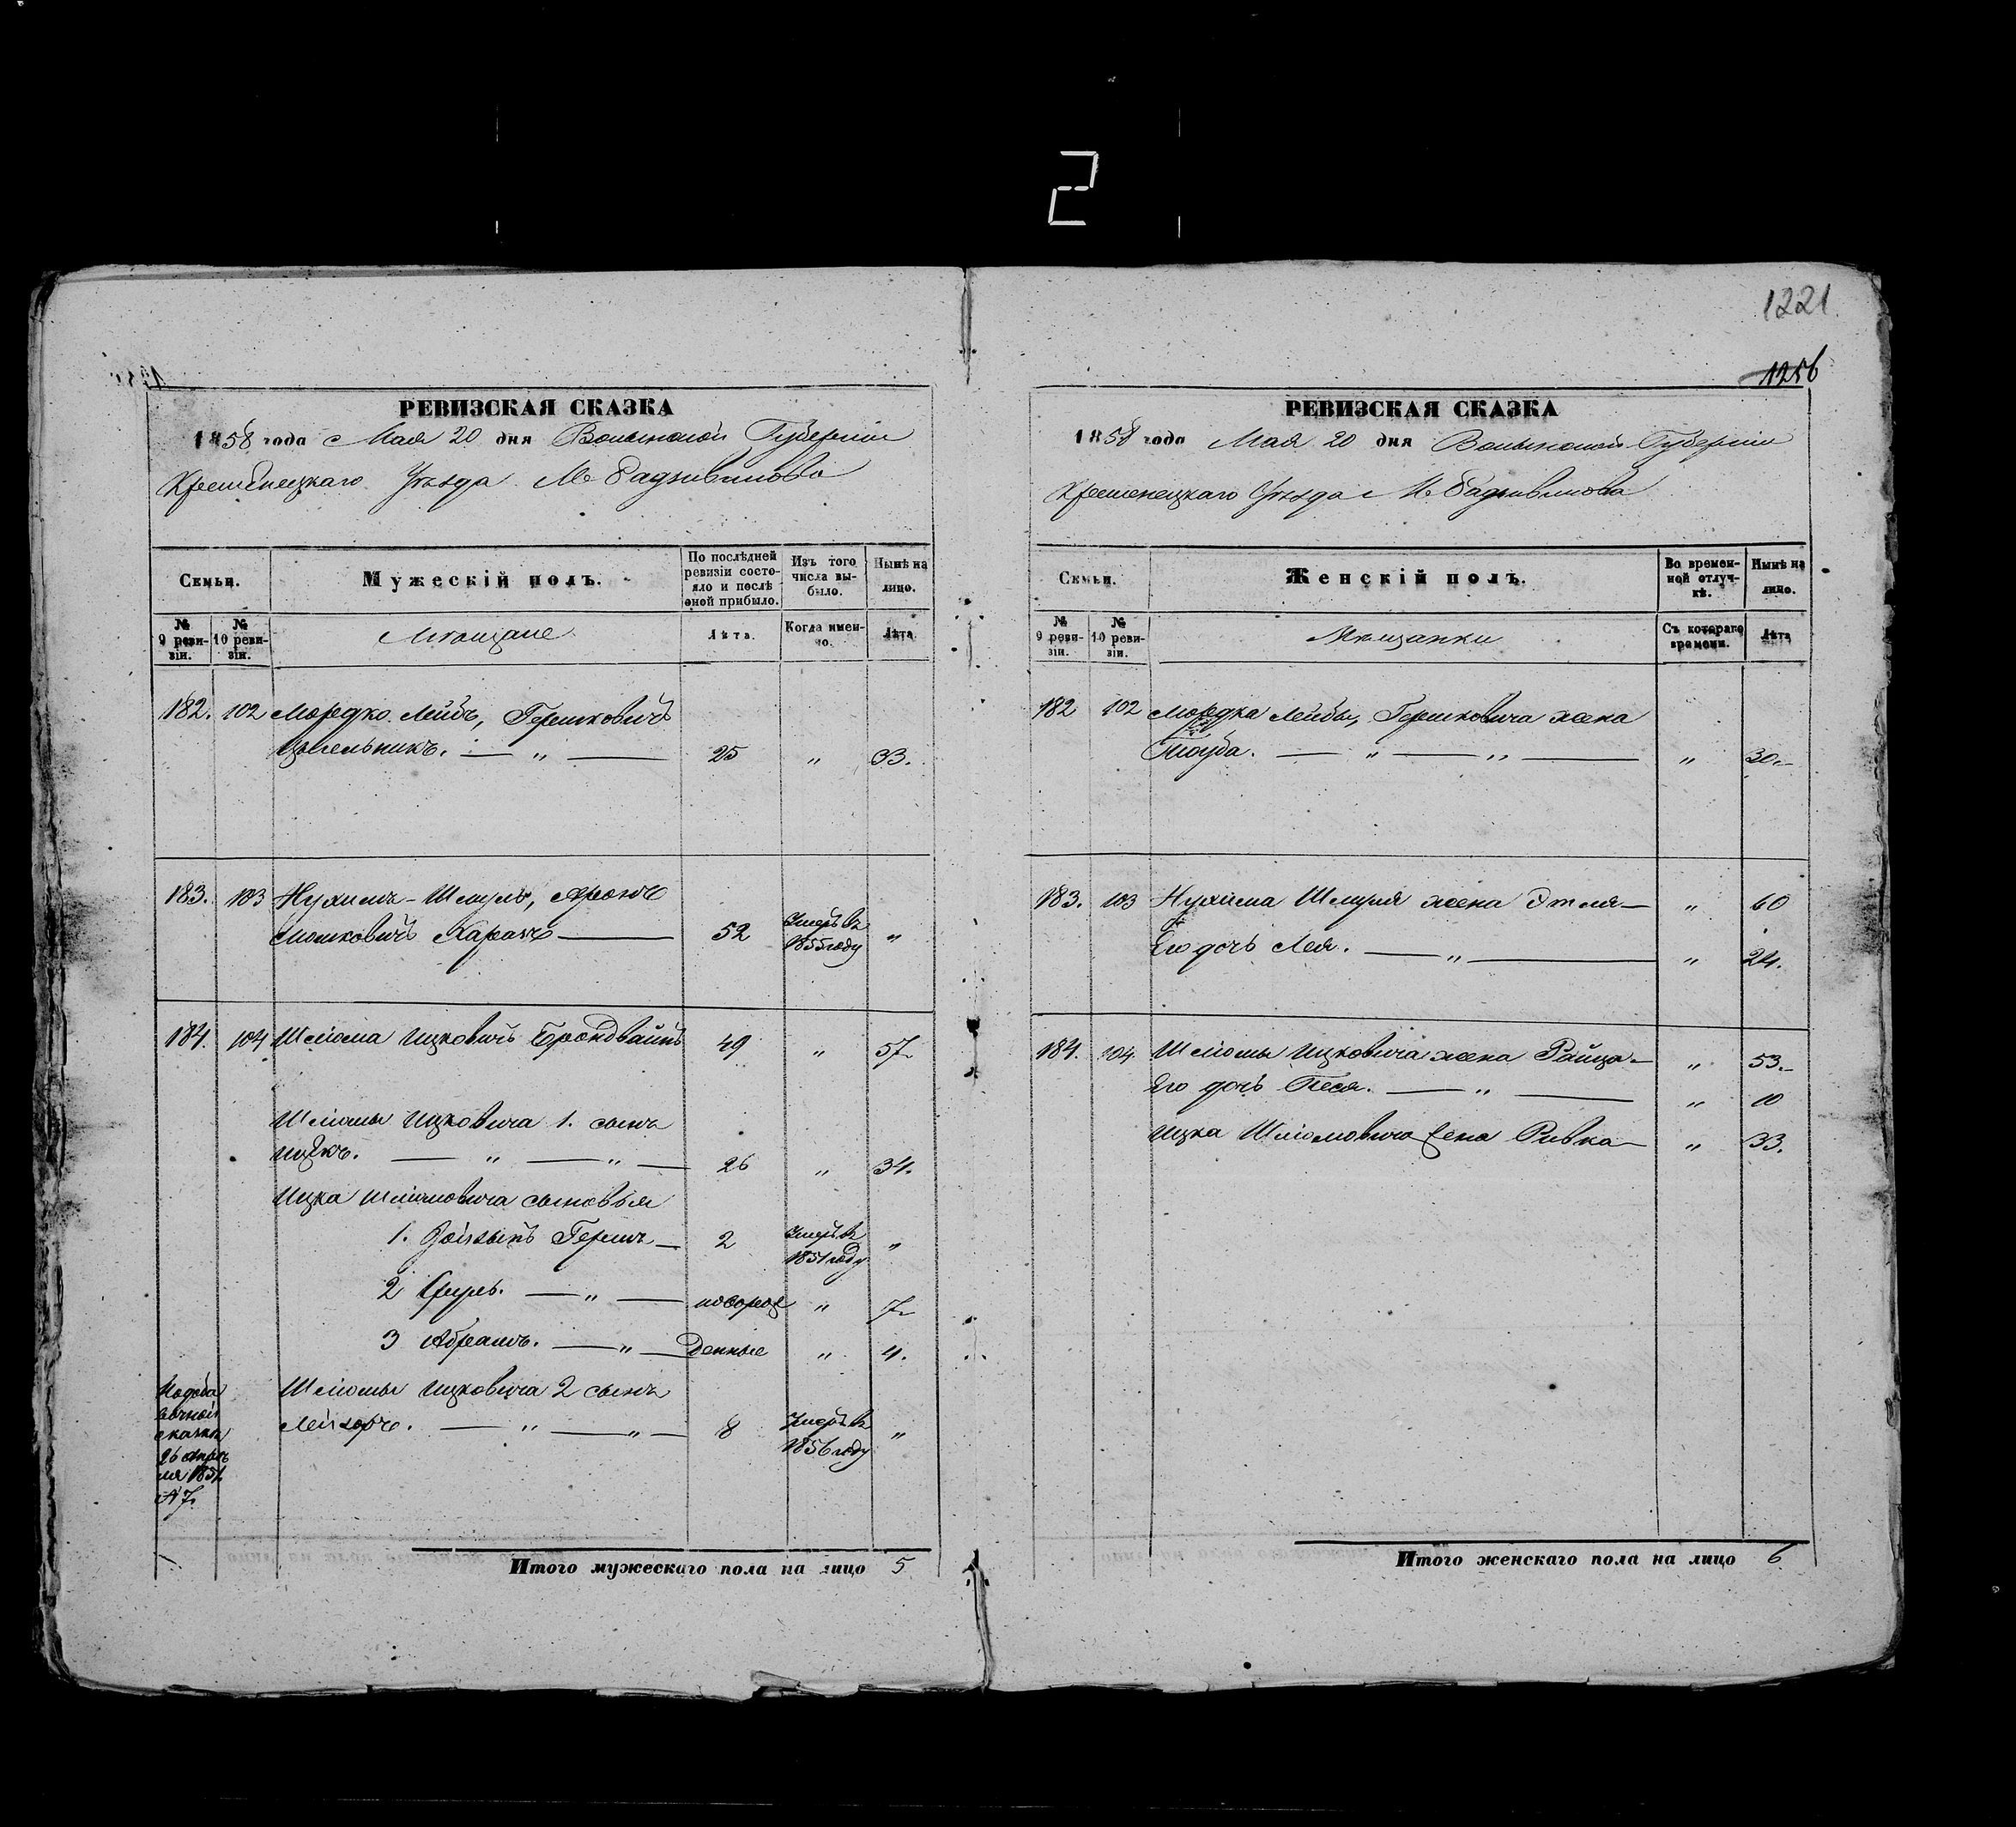 2
1221
1256
РЕВИЗСКАЯ СКАЗКА
1858 года Мая 20 дня Волынской Губерніи
Кременецкаго Уѣзда М. Радзивилова
Семьи.
Мужескій полъ.
По послѣдней ревизіи состояло и послѣ оной прибыло.
Изъ того числа выбыло.
Нынѣ на лицо.
№ 9 ревизіи.
№ 10 ревизіи.
Мѣщане
Лѣта.
Когда именно.
Лѣта
182. 102 Мордко Лейбъ, Гершковичъ
Цигельникъ. — „ — 25 „ 33.
183. 103 Нухимъ-Шмуль, Аронъ
Мошковичъ Каранъ — 52 Умеръ въ 1855 году „
184. 104 Шлиома Ицковичъ Брондвайнъ 49 „ 57
Шлиомы Ицковича 1. сынъ
Ицкъ. — „ — „ — 26 „ 34.
Ицка Шлиомовича сыновья
1. Герш — 2 Умеръ въ 1851 году „
2 — „ — новорож „ 7
3 Абрамъ. — „ — денные „ 4.
Шлиомы Ицковича 2 сынъ
Лейзоръ. — „ — „ — 8 Умеръ въ 1856 году „
сказки
26 апрѣ
ля 1851
№ 7.
Итого мужескаго пола на лицо 5
РЕВИЗСКАЯ СКАЗКА
1858 года Мая 20 дня Волынской Губерніи
Кременецкаго Уѣзда М. Радзивилова
Семьи.
Женскій полъ.
Во временной отлучкѣ.
Нынѣ на лицо.
№ 9 ревизіи.
№ 10 ревизіи.
Мѣщанки
Съ котораго времени.
Лѣта
182 102 Мордка Лейбы, Гершковича жена
Тауба. — „ — „ — „ 30
183. 103 Нухима Шмуля жена Этля — „ 60
Его дочь Лея. — „ — „ 24.
184. 104 Шлиомы Ицковича жена Райца — „ 53
Его дочь Песя. — „ — „ 10
Ицка Шлиомовича жена Ривка — „ 33.
Итого женскаго пола на лицо 6